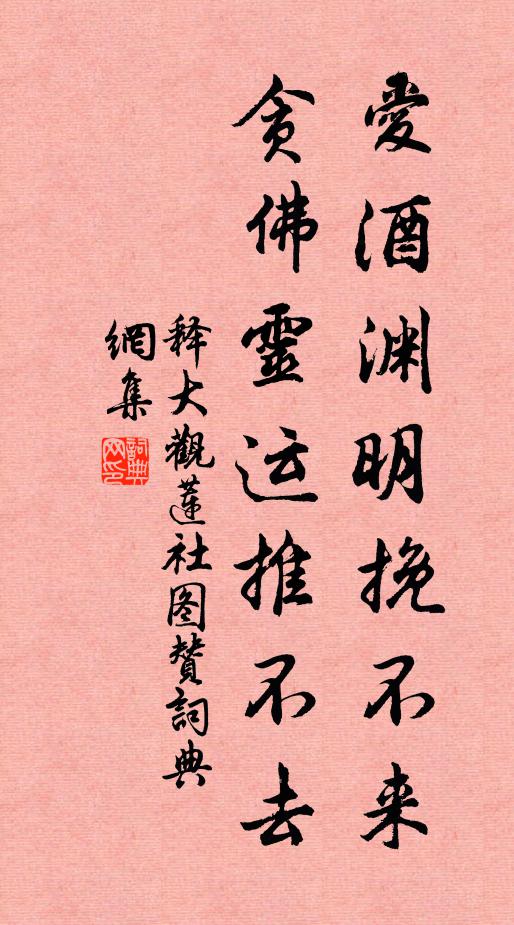 愛酒渊明挽不来
贪佛靈运推不去
释大觀莲社图赞詞典
網集
詞典
网印